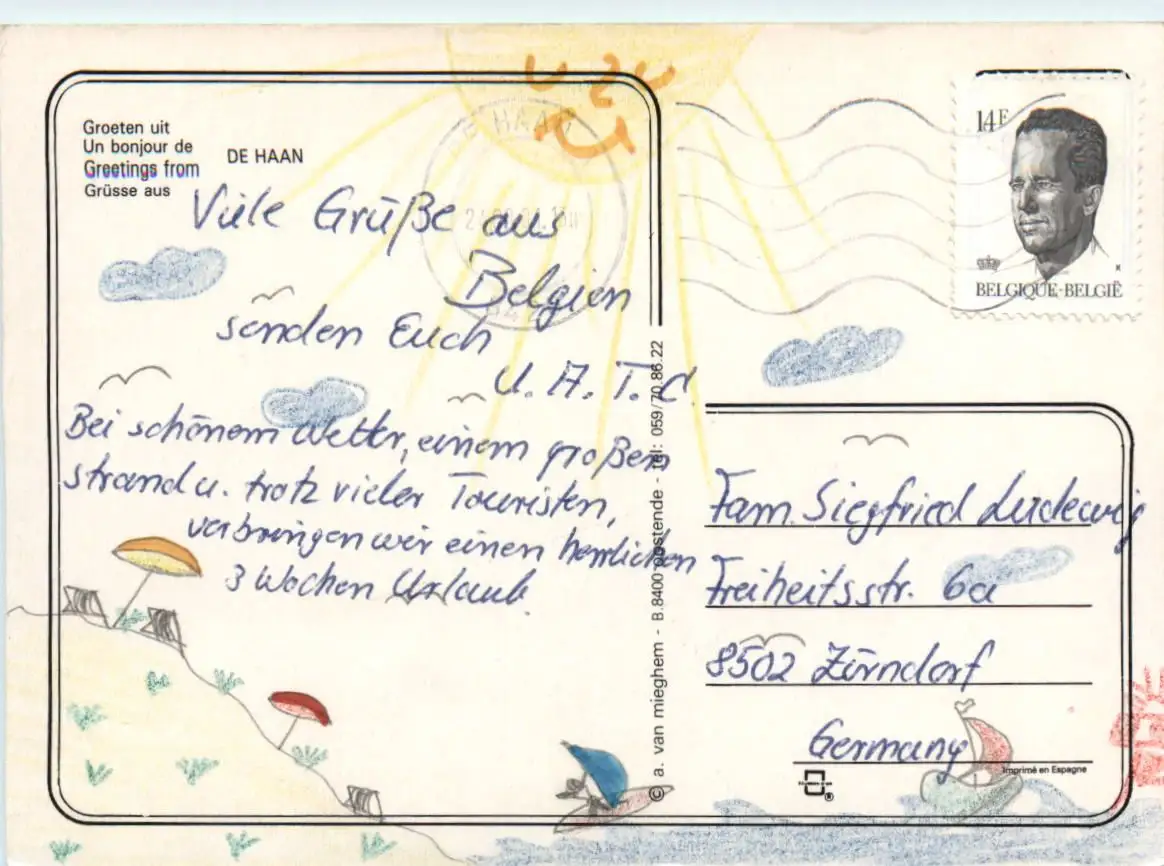 Groeten uit
Un bonjour de
Greetings from
Grüsse aus
DE HAAN
Viele Grüße aus
Belgien
senden Euch
U. A. T. C.
Bei schönem Wetter, einem großen
Strand u. trotz vieler Touristen,
verbringen wir einen herrlichen
3 Wochen Urlaub.
DE HAAN
© a. van mieghem - B.8400 oostende - tel: 059/70.86.22
14F
BELGIQUE-BELGIË
Fam. Siegfried Ludewig
Freiheitsstr. 6a
8502 Zirndorf
Germany
Imprimé en Espagne